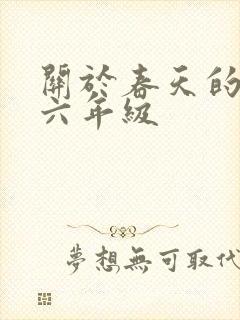 關於春天的
六年級
夢想無可取代